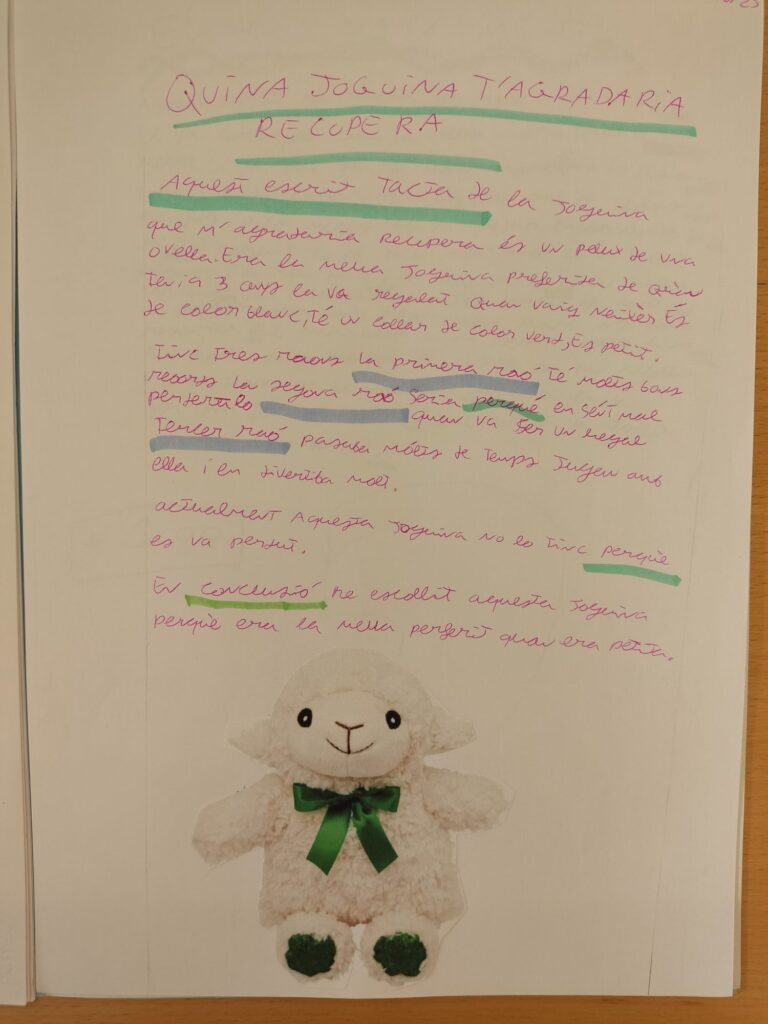 QUINA JOGUINA T'AGRADARIA
RECUPERA
Aquest escrit Tacta de la Joguina
que m'agradaria recupera és un pelux de una
ovella. Era la mella Joguina preferida de quan
Tenia 3 anys la va regalat quan vaig neixèr És
de color blanc, Té un collar de color verd, Es petit.
Tinc Tres raons la primera raó Té molts bons
records la segona raó Seria perquè em Sént mal
perdertilo quan va ser un regal
Tercer raó pasaba molts de Temps Jugen amb
ella i em divertiba molt.
actualment Aquesta Joguina no lo Tinc perquè
es va perdut.
En conclusió he escollit aquesta Joguina
perquè era la mella perferit quan era petita.